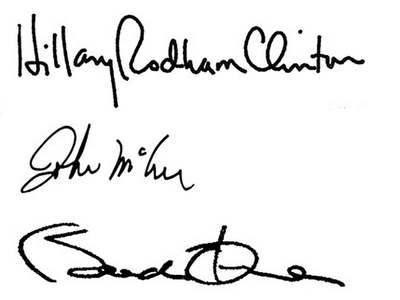 Hillary Rodham Clinton
John McCain
Barack Obama